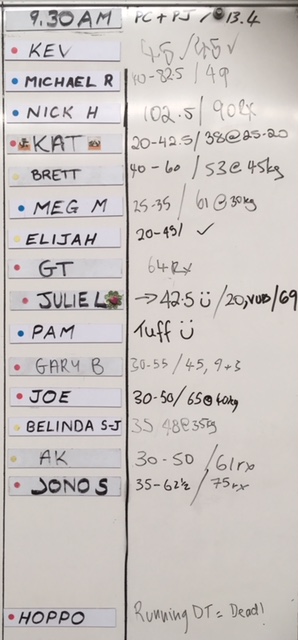 9.30 AM PC + PJ / 13.4
KEV 45 / 45 ✓
MICHAEL R 40-82.5 / 49
NICK H 102.5 / 90Rx
KAT 20-42.5 / 38@25-20
BRETT 40-60 / 53@45kg
MEG M 25-35 / 61@30kg
ELIJAH 20-45 / ✓
GT 64Rx
JULIE L → 42.5 Ü / 20, /69
PAM Tuff Ü
GARY B 30-55 / 45, 9+3
JOE 30-50 / 65@40kg
BELINDA S-J 35 48@35kg
AK 30-50 / 61rx
JONO S 35-62½ / 75rx
HOPPO Running DT = Dead!